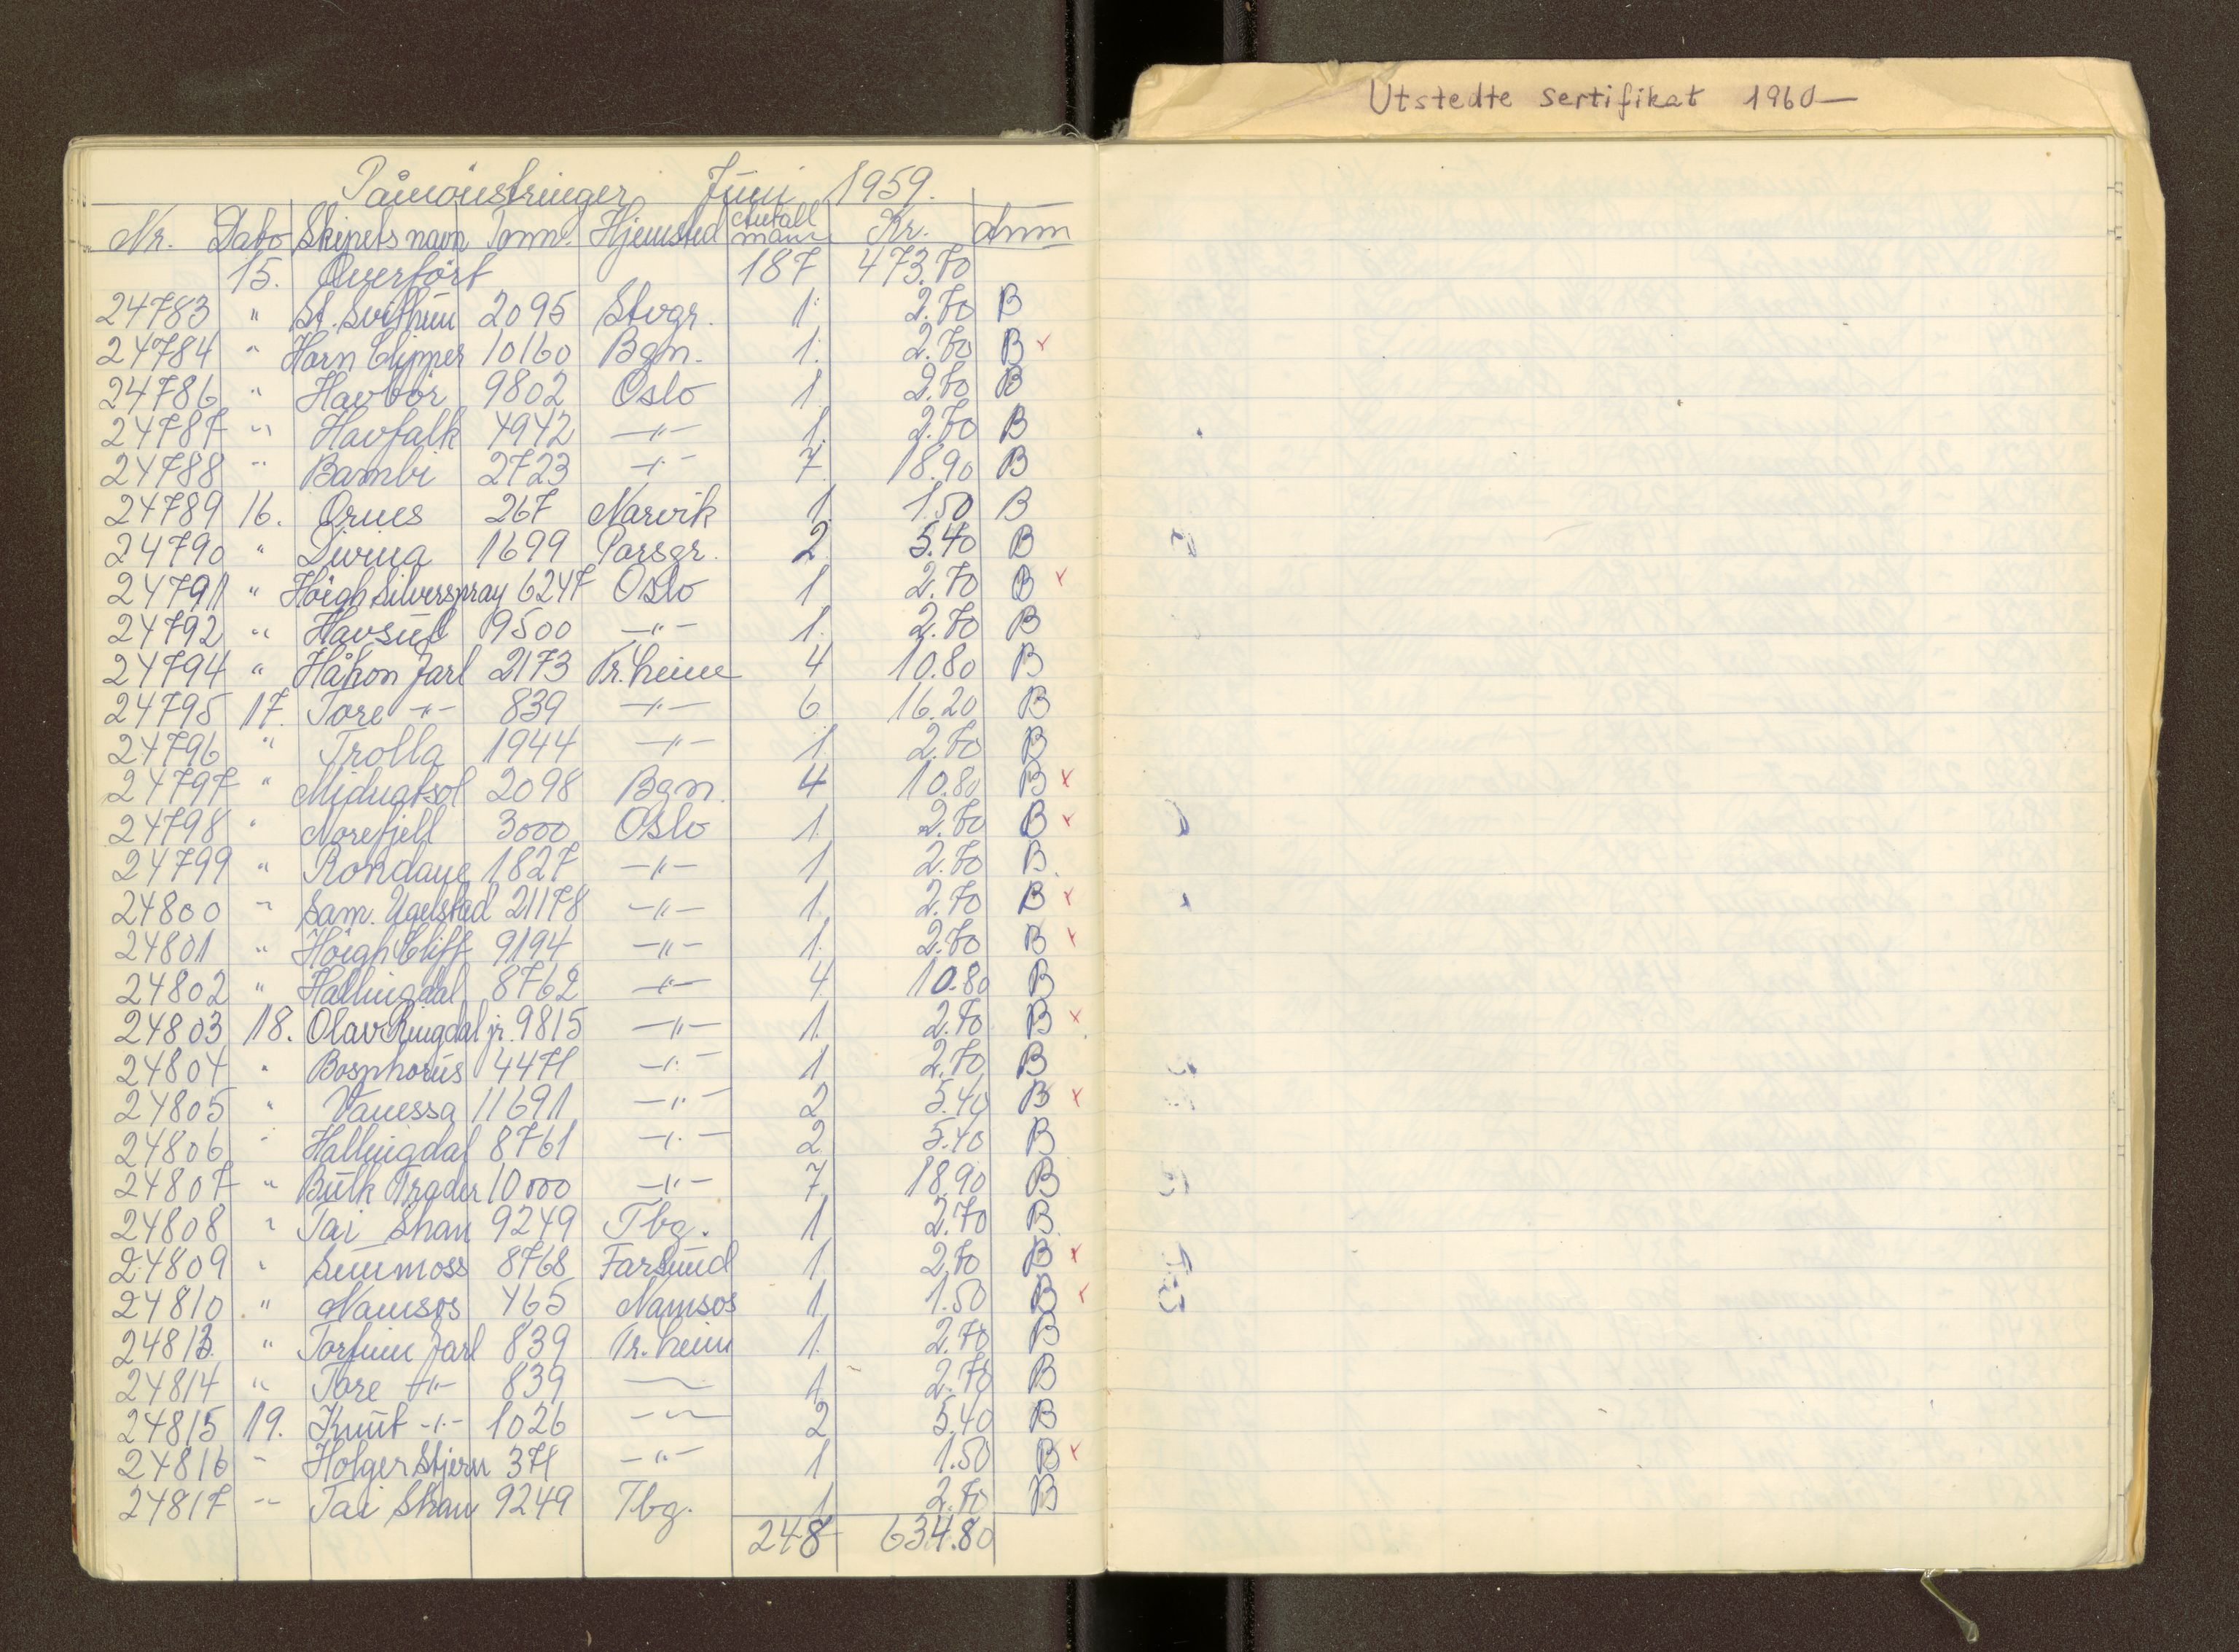 Utstedte Sertifikat 1960—
Påmönstringer Juni 1959.
Nr. Dato Skipets navn Tonn. Hjemsted Antall mann Kr. Anm
15. Overfört 187 473.70
24783 " St. Svithun 2095 Stvgr. 1 2.70 B
24784 " Horn Clipper 10160 Bgn. 1. 2.70 B x
24786 " Havbör 9802 Oslo 1 2.70 B
24787 " Havfalk 4942 —"— 1. 2.70 B
24788 " Bambi 2723 —"— 7 18.90 B
24789 16. Ornes 267 Narvik 1. 1.50 B
24790 " Divina 1699 Porsgr. 2 5.40 B
24791 " Höigh Silverspray 6247 Oslo 1 2.70 B x
24792 " Havsul 19500 —"— 1. 2.70 B
24794 " Håkon Jarl 2173 Tr.heim 4 10.80 B
24795 17. Tore —"— 839 —"— 6 16.20 B
24796 " Trolla 1944 —"— 1 2.70 B
24797 " Midnatsol 2098 Bgn. 4 10.80 B x
24798 " Norefjell 3000 Oslo 1 2.70 B x
24799 " Rondane 1827 —"— 1 2.70 B.
24800 " Sam. Ugelstad 21178 —"— 1 2.70 B x
24801 " Höigh Cliff 9194 —"— 1. 2.70 B x
24802 " Hallingdal 8762 —"— 4 10.80 B
24803 18. Olav Ringdal jr. 9815 —"— 1. 2.70 B x
24804 " Bosphorus 4471 —"— 1 2.70 B
24805 " Vanessa 11691 —"— 2 5.40 B x
24806 " Hallingdal 8761 —"— 2 5.40 B
24807 " Bulk Trader 10000 —"— 7 18.90 B
24808 " Tai Shan 9249 Tbg. 1 2.70 B
24809 " Sunmoss 8768 Farsund 1 2.70 B x
24810 " Namsos 465 Namsos 1 1.50 B x
24813. " Torfinn Jarl 839 Tr.heim 1. 2.70 B
24814 " Tore —"— 839 —"— 1 2.70 B
24815 19. Knut —"— 1026 —"— 2 5.40 B
24816 " Holger Stjern 371 —"— 1 1.50 B x
24817 " Tai Shan 9249 Tbg. 1 2.70 B
248 634.80